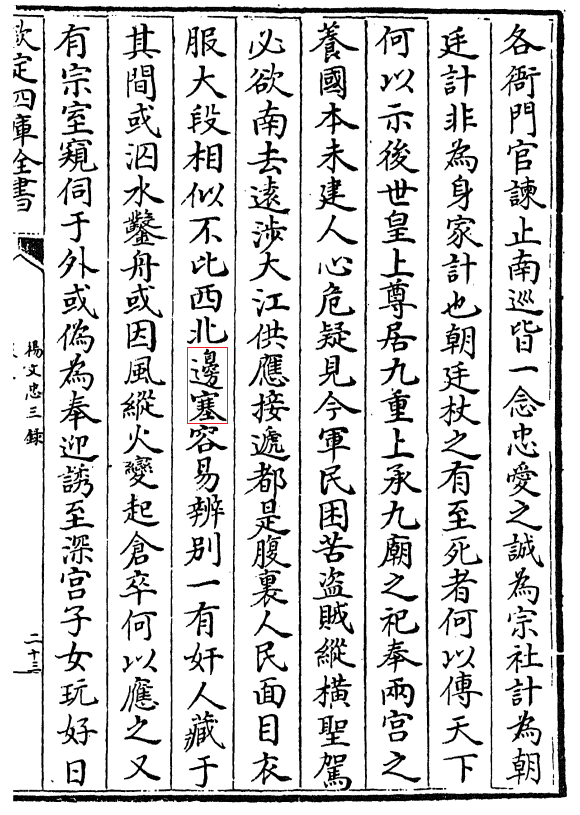 各衙門官諫止南巡皆一念忠愛之誠為宗社計為朝
廷計非為身家計也朝廷杖之有至死者何以傳天下
何以示後世皇上尊居九重上承九廟之祀奉兩宫之
養國本未建人心危疑見今軍民困苦盜賊縱横聖駕
必欲南去遠涉大江供應接遞都是腹裏人民面目衣
服大段相似不比西北邊塞容易辨别一有奸人藏于
其間或泅水鑿舟或因風縱火變起倉卒何以應之又
有宗室窺伺于外或偽為奉迎誘至深宫子女玩好日
欽定四庫全書
楊文忠三録
二十三